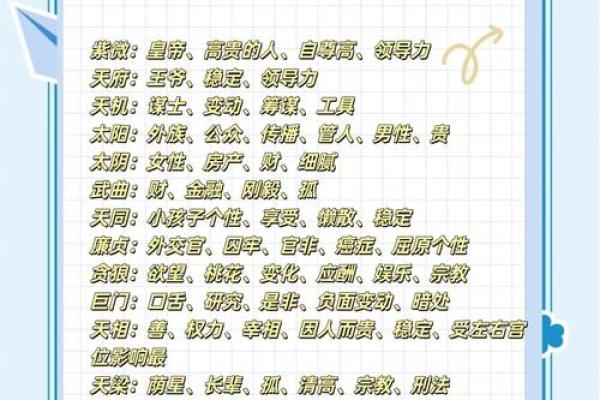 紫微：皇帝、高贵的人、自尊高、领导力
天府：王爷、稳定、领导力
天机：谋士、变动、筹谋、工具
太阳：外族、公众、传播、管人、男性、贵
太阴：女性、房产、财、细腻
武曲：财、金融、刚毅、孤
天同：小孩子个性、享受、懒散、稳定
廉贞：外交官、囚牢、官非、癌症、屈原个性
贪狼：欲望、桃花、变化、应酬、娱乐、宗教
巨门：口舌、研究、是非、负面变动、暗处
天相：善、权力、宰相、因人而贵、稳定、受左右宫
位影响最
天梁：荫星、长辈、孤、清高、宗教、刑法